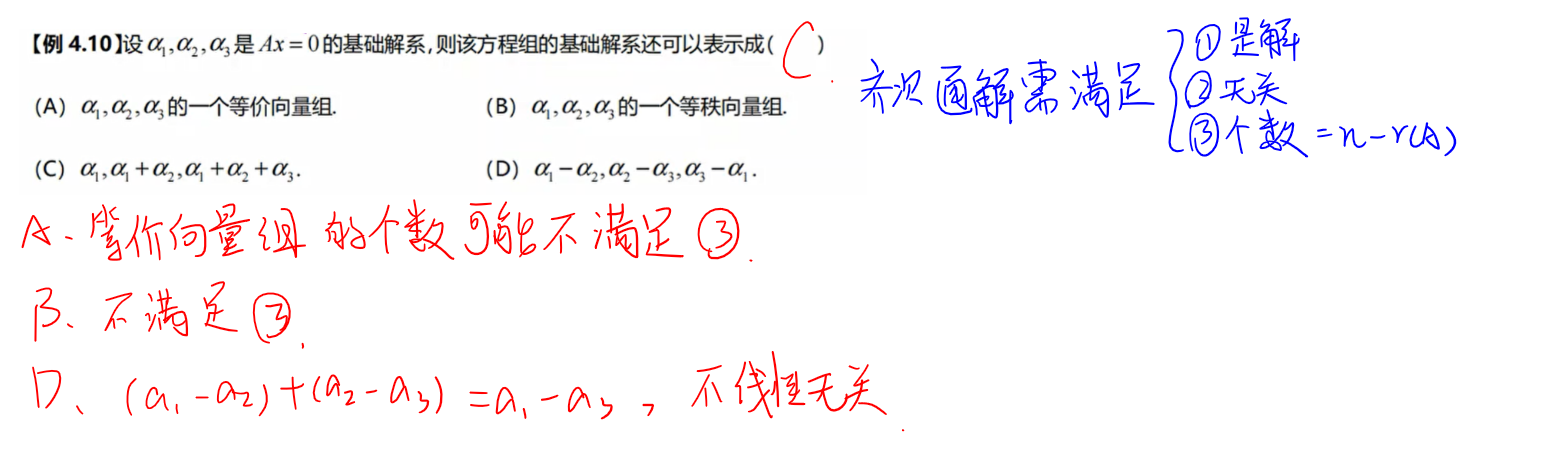 【例 4.10】设 α₁,α₂,α₃ 是 Ax=0 的基础解系,则该方程组的基础解系还可以表示成( C )
(A) α₁,α₂,α₃ 的一个等价向量组.
(B) α₁,α₂,α₃ 的一个等秩向量组.
(C) α₁,α₁+α₂,α₁+α₂+α₃.
(D) α₁−α₂,α₂−α₃,α₃−α₁.
齐次通解需满足
①是解
②无关
③个数=n-r(A)
A、等价向量组的个数可能不满足③.
B、不满足③.
D、(a₁-a₂)+(a₂-a₃)=a₁-a₃,不线性无关.